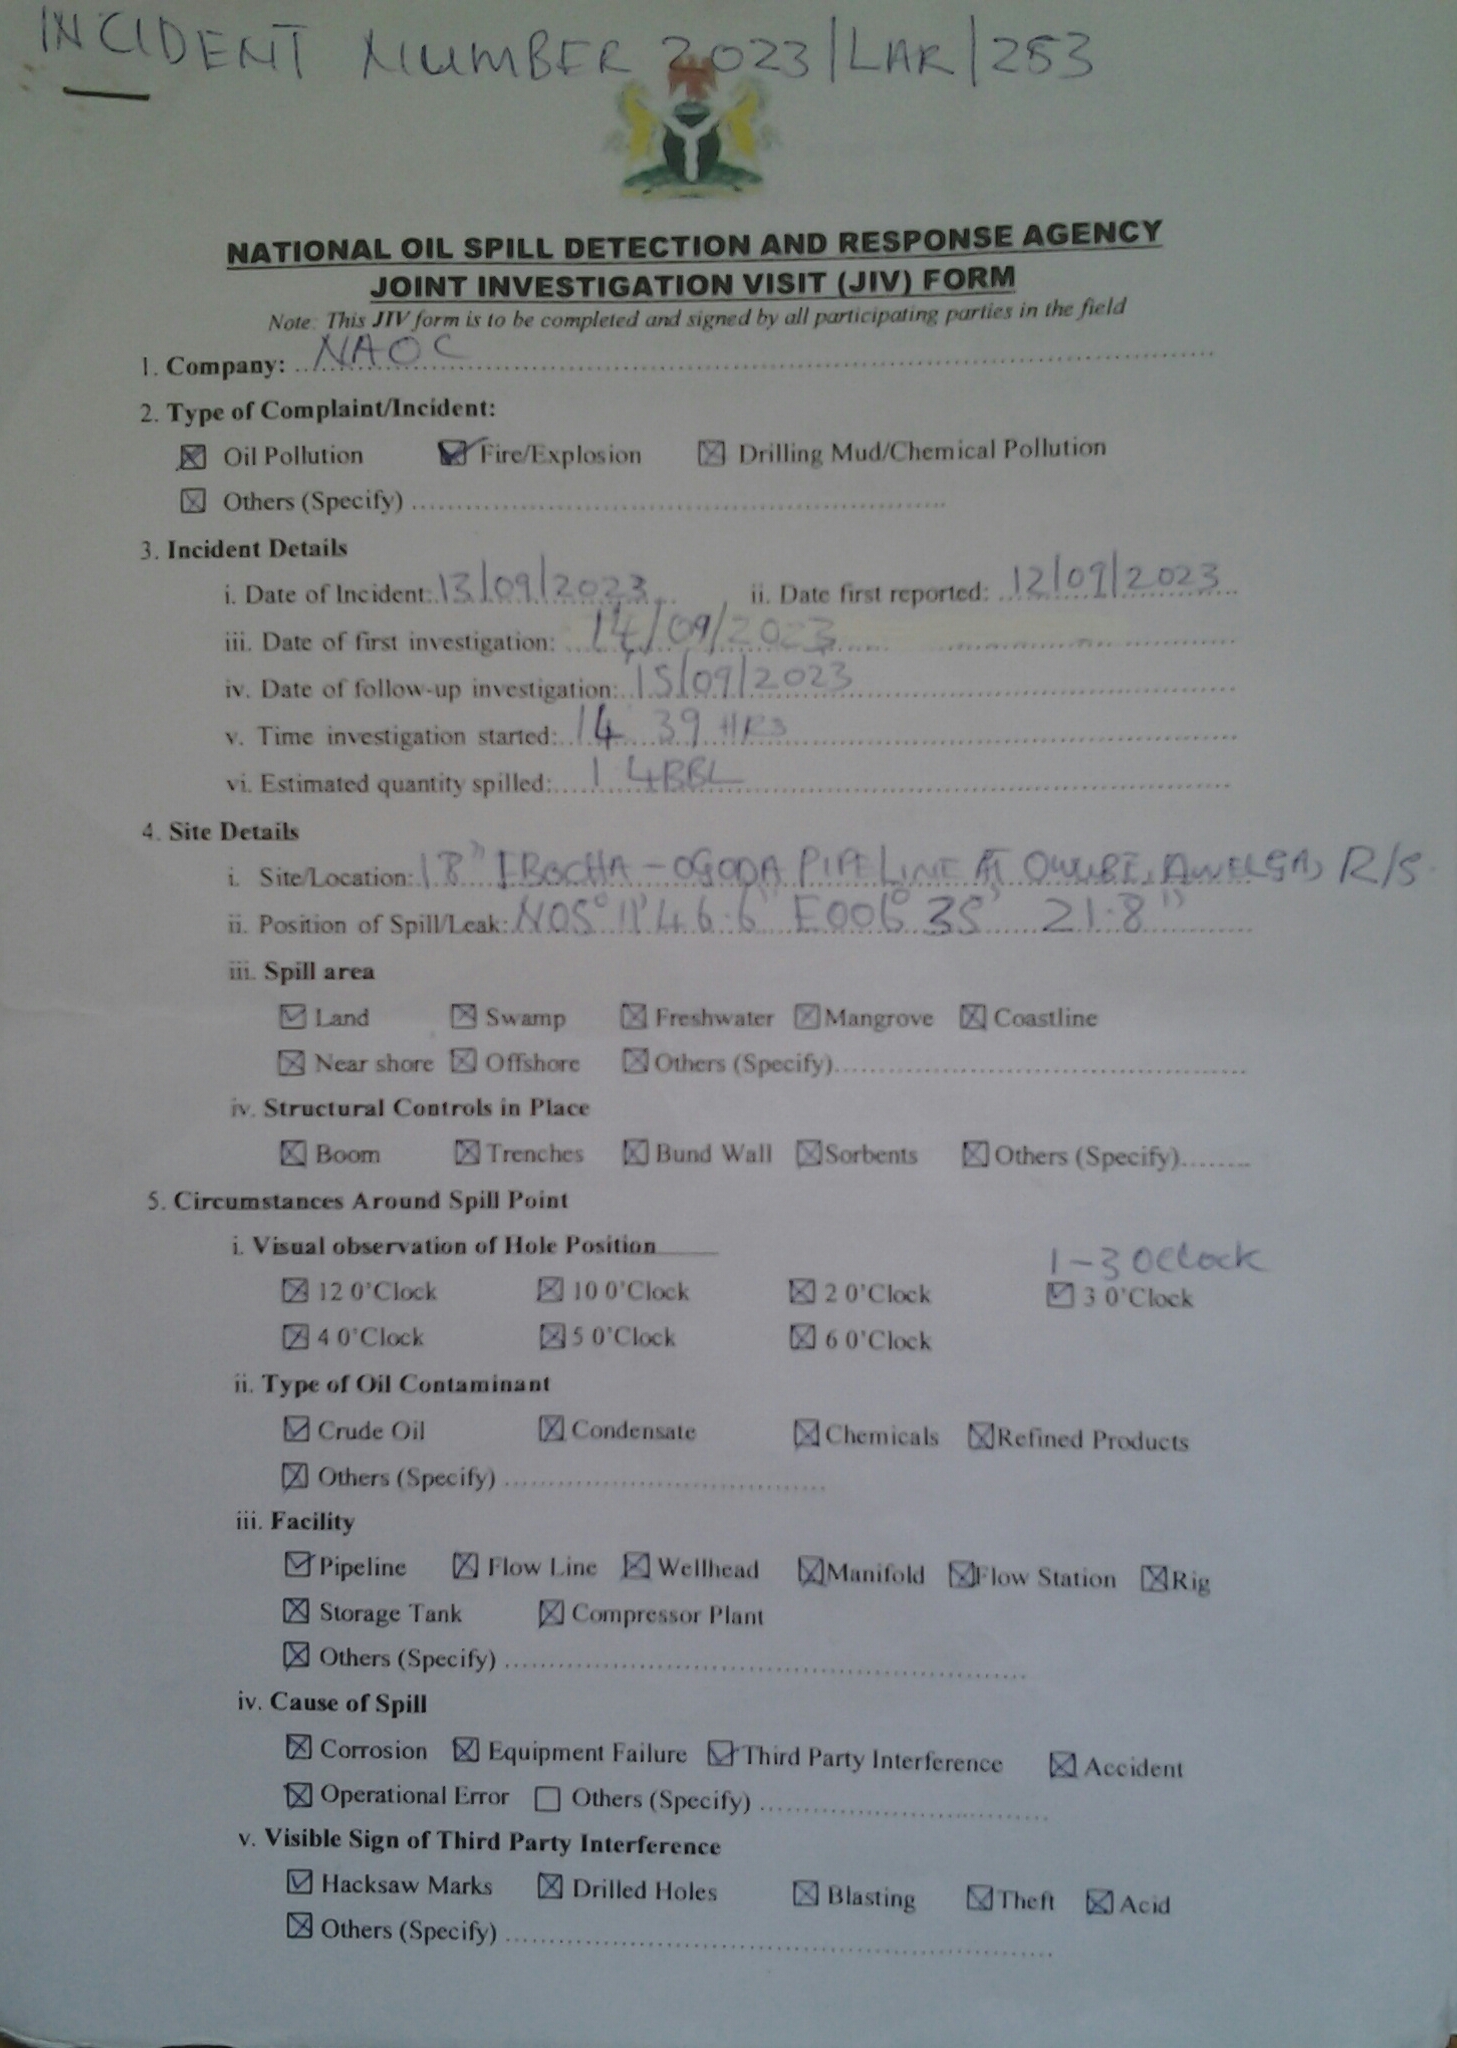 INCIDENT NUMBER 2023/LAR/253
NATIONAL OIL SPILL DETECTION AND RESPONSE AGENCY
JOINT INVESTIGATION VISIT (JIV) FORM
Note: This JIV form is to be completed and signed by all participating parties in the field
1. Company: NAOC
2. Type of Complaint/Incident:
☒ Oil Pollution ☑ Fire/Explosion ☒ Drilling Mud/Chemical Pollution
☒ Others (Specify)
3. Incident Details
i. Date of Incident: 13/09/2023 ii. Date first reported: 12/09/2023
iii. Date of first investigation: 14/09/2023
iv. Date of follow-up investigation: 15/09/2023
v. Time investigation started: 14 39 HRS
vi. Estimated quantity spilled: 1 4BBL
4. Site Details
i. Site/Location: 18" EBOCHA - OGODA PIPELINE AT R/S
ii. Position of Spill/Leak: N05° 11' 46.6" E006° 35' 21.8"
iii. Spill area
☑ Land ☒ Swamp ☒ Freshwater ☒ Mangrove ☒ Coastline
☒ Near shore ☒ Offshore ☒ Others (Specify)
iv. Structural Controls in Place
☒ Boom ☒ Trenches ☒ Bund Wall ☒ Sorbents ☒ Others (Specify)
5. Circumstances Around Spill Point
i. Visual observation of Hole Position
1-3 OClock
☒ 12 0'Clock ☒ 10 0'Clock ☒ 2 0'Clock ☑ 3 0'Clock
☒ 4 0'Clock ☒ 5 0'Clock ☒ 6 0'Clock
ii. Type of Oil Contaminant
☑ Crude Oil ☒ Condensate ☒ Chemicals ☒ Refined Products
☒ Others (Specify)
iii. Facility
☑ Pipeline ☒ Flow Line ☒ Wellhead ☒ Manifold ☒ Flow Station ☒ Rig
☒ Storage Tank ☒ Compressor Plant
☒ Others (Specify)
iv. Cause of Spill
☒ Corrosion ☒ Equipment Failure ☑ Third Party Interference ☒ Accident
☒ Operational Error ☐ Others (Specify)
v. Visible Sign of Third Party Interference
☑ Hacksaw Marks ☒ Drilled Holes ☒ Blasting ☒ Theft ☒ Acid
☒ Others (Specify)